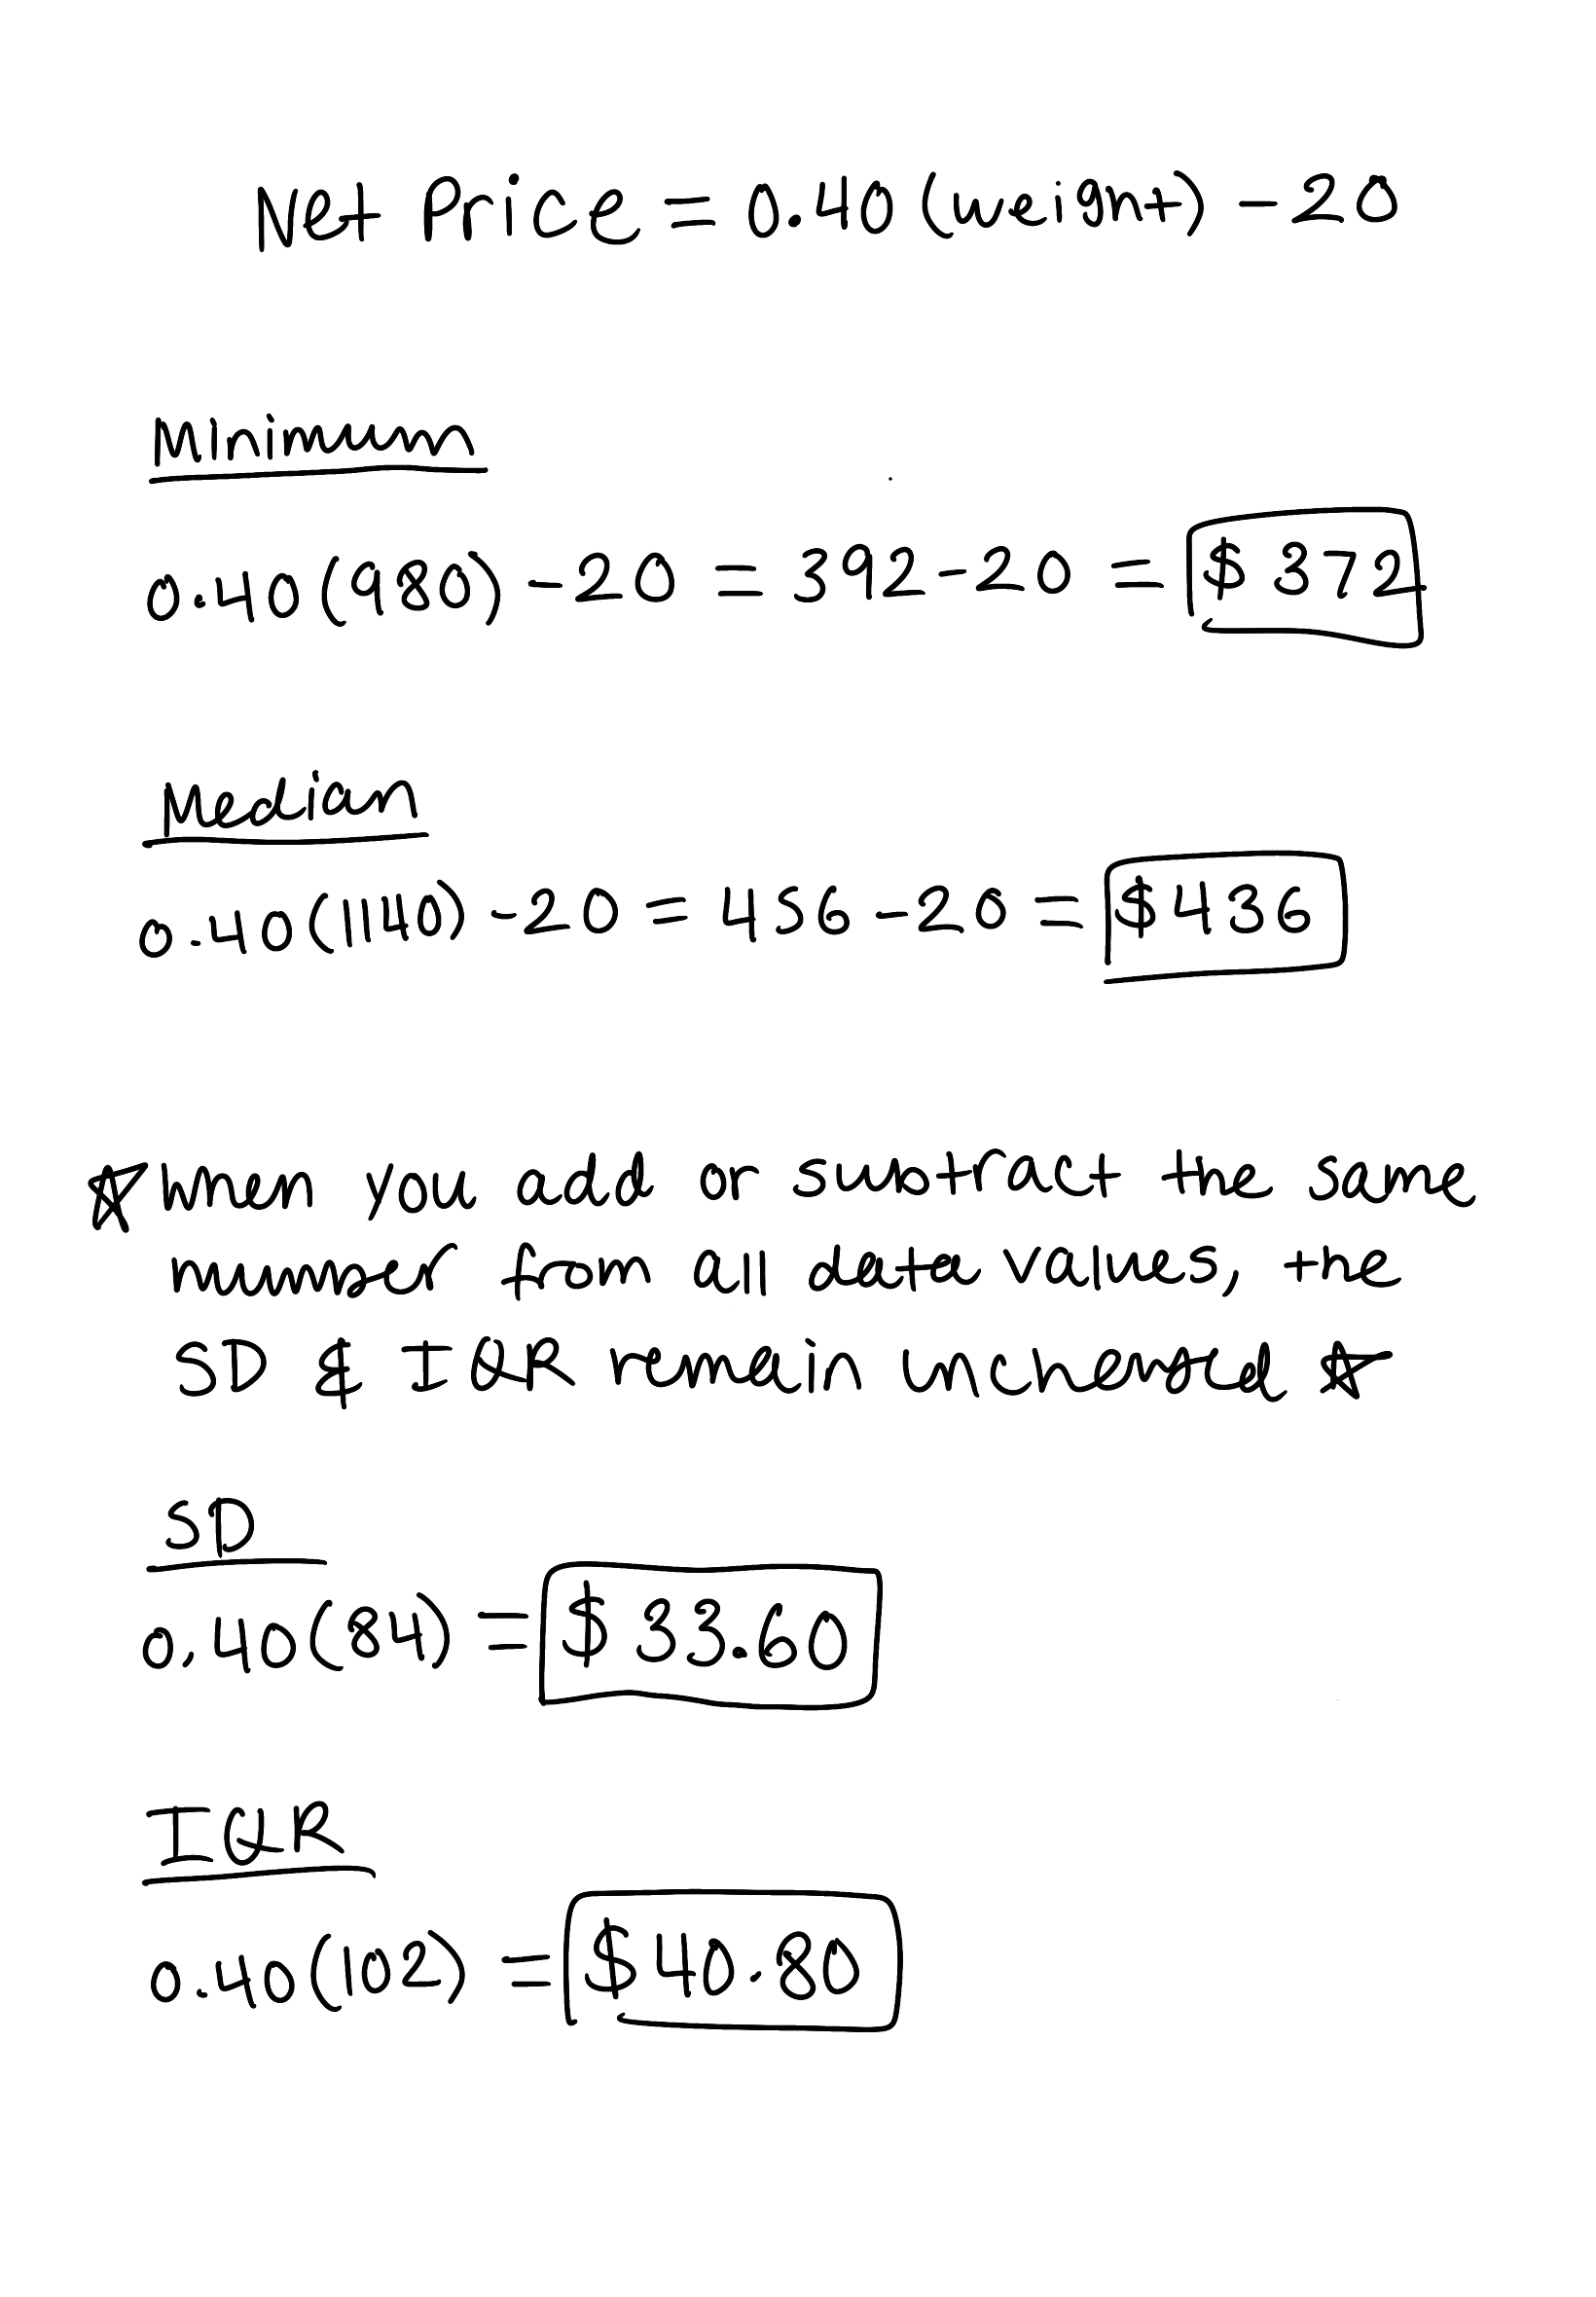 Net Price = 0.40 (weight) - 20
Minimum
0.40 (980) - 20 = 392 - 20 = $ 372
Median
0.40 (1140) - 20 = 456 - 20 = $436
☆ when you add or subtract the same
number from all data values, the
SD & IQR remain unchanged ☆
SD
0.40 (84) = $ 33.60
IQR
0.40 (102) = $40.80